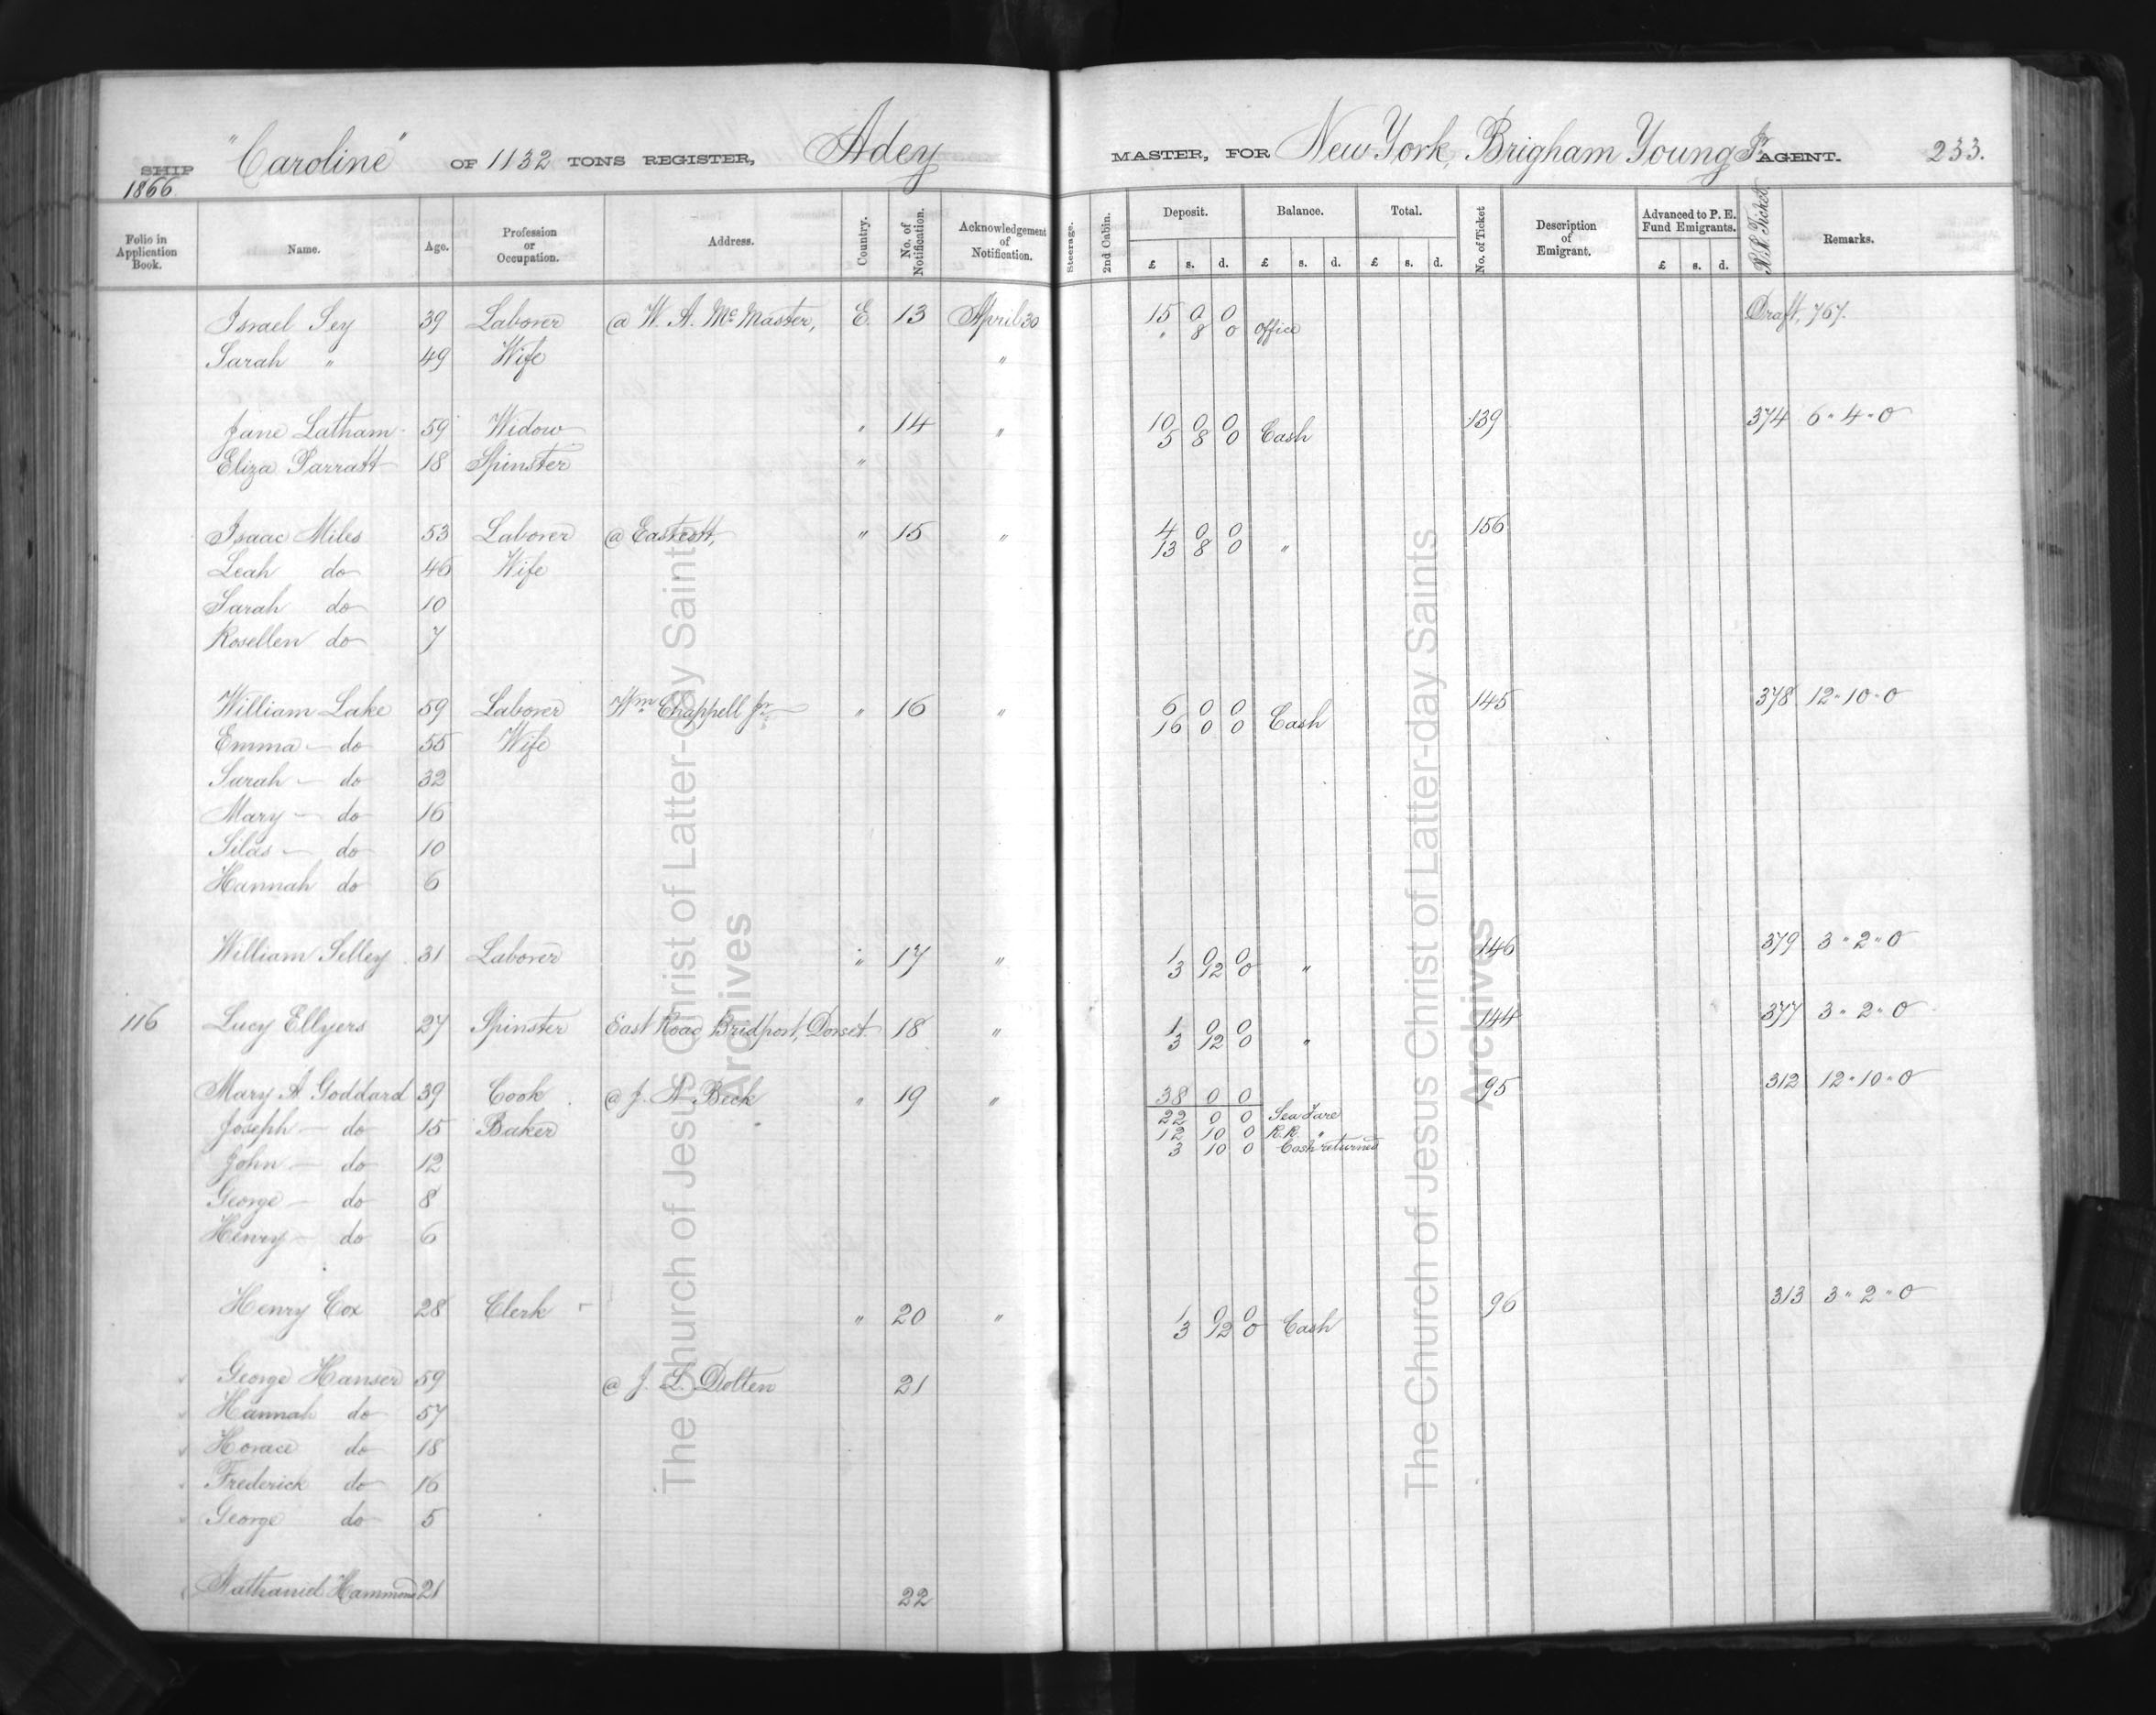 SHIP "Caroline" OF 1132 TONS REGISTER, Adey MASTER, FOR New York, Brigham Young Jr. AGENT. 233.
1866.
Folio in Application Book. Name. Age. Profession or Occupation. Address. Country. No. of Notification. Acknowledgement of Notification. Steerage. 2nd Cabin. Deposit. £ s. d. Balance. £ s. d. Total. £ s. d. No. of Ticket Description of Emigrant. Advanced to P. E. Fund Emigrants. £ s. d. R.R. Ticket. Remarks.
Israel Sey 39 Laborer @ W. A. Mc Master, E. 13 April 30 15 0 0 Draft, 767.
" 8 0 office
Sarah " 49 Wife "
Jane Latham 59 Widow " 14 " 10 0 0 139 374 6 " 4 " 0
5 8 0 Cash
Eliza Parratt 18 Spinster "
Isaac Miles 53 Laborer @ Eastcott, " 15 " 4 0 0 156
13 8 0 "
Leah do 46 Wife
Sarah do 10
Rosellen do 7
William Lake 59 Laborer Wm Chappell Jr. " 16 " 6 0 0 145 378 12 " 10 " 0
16 0 0 Cash
Emma — do 55 Wife
Sarah — do 32
Mary — do 16
Silas — do 10
Hannah do 6
William Selley 31 Laborer " 17 " 1 0 0 146 379 3 " 2 " 0
3 12 0 "
116 Lucy Ellyers 27 Spinster East Road, Bridport, Dorset 18 " 1 0 0 144 377 3 " 2 " 0
3 12 0 "
Mary A Goddard 39 Cook @ J. A Beck " 19 " 38 0 0 95 312 12 " 10 " 0
22 0 0 Sea Fare
Joseph — do 15 Baker 12 10 0 R.R. "
3 10 0 Cash returned
John — do 12
George — do 8
Henry — do 6
Henry Cox 28 Clerk " 20 " 1 0 0 96 313 3 " 2 " 0
3 12 0 Cash
George Hanser 59 @ J. L. Dolten 21
Hannah do 57
Horace do 18
Frederick do 16
George do 5
Nathaniel Hammond 21 22
The Church of Jesus Christ of Latter-day Saints
Archives
The Church of Jesus Christ of Latter-day Saints
Archives